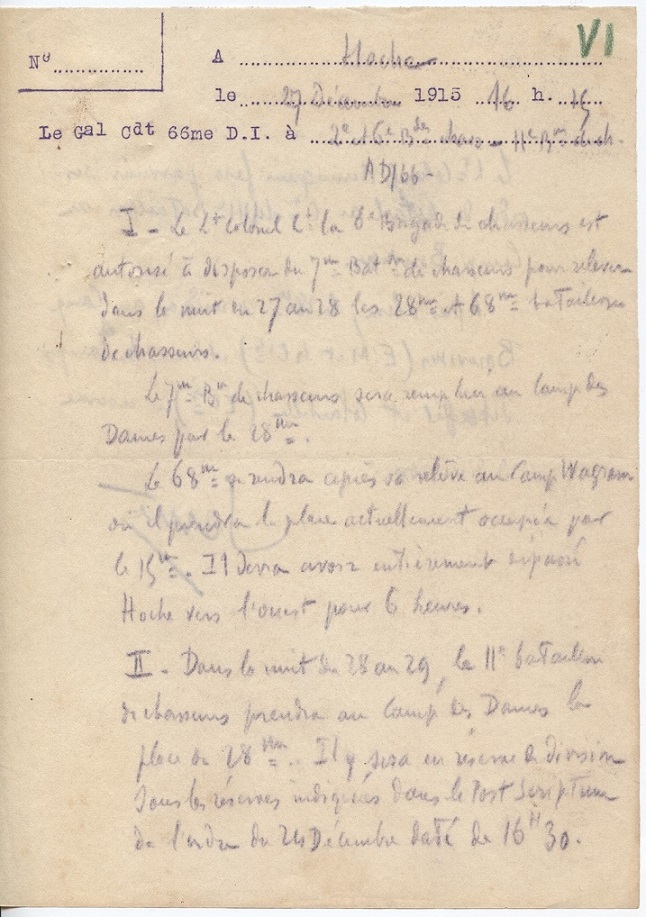 VI
N° ............. A Hoche
le 27 Décembre 1915 16 h. 15
Le Gal Cdt 66me D.I. à 2e et 6e Bdes chass - 11e Bon de ch.
AD/66 -
I - Le Lt Colonel Ct la 8e Brigade de chasseurs est
autorisé à disposer du 7me Bat on de chasseurs pour relever
dans la nuit du 27 au 28 les 28me et 68me bataillons
de chasseurs.
Le 7me Bn de chasseurs sera remplacé au Camp des
Dames par le 28me.
Le 68me se rendra après sa relève au Camp Wagram
où il prendra la place actuellement occupée par
le 15me. Il devra avoir entièrement dépassé
Hoche vers l'ouest pour 6 heures.
II - Dans la nuit du 28 au 29, le 11e bataillon
de chasseurs prendra au Camp des Dames la
place du 28me. Il y sera en réserve de division
sous les réserves indiquées dans le Post Scriptum
de l'ordre du 24 Décembre daté de 16H30.